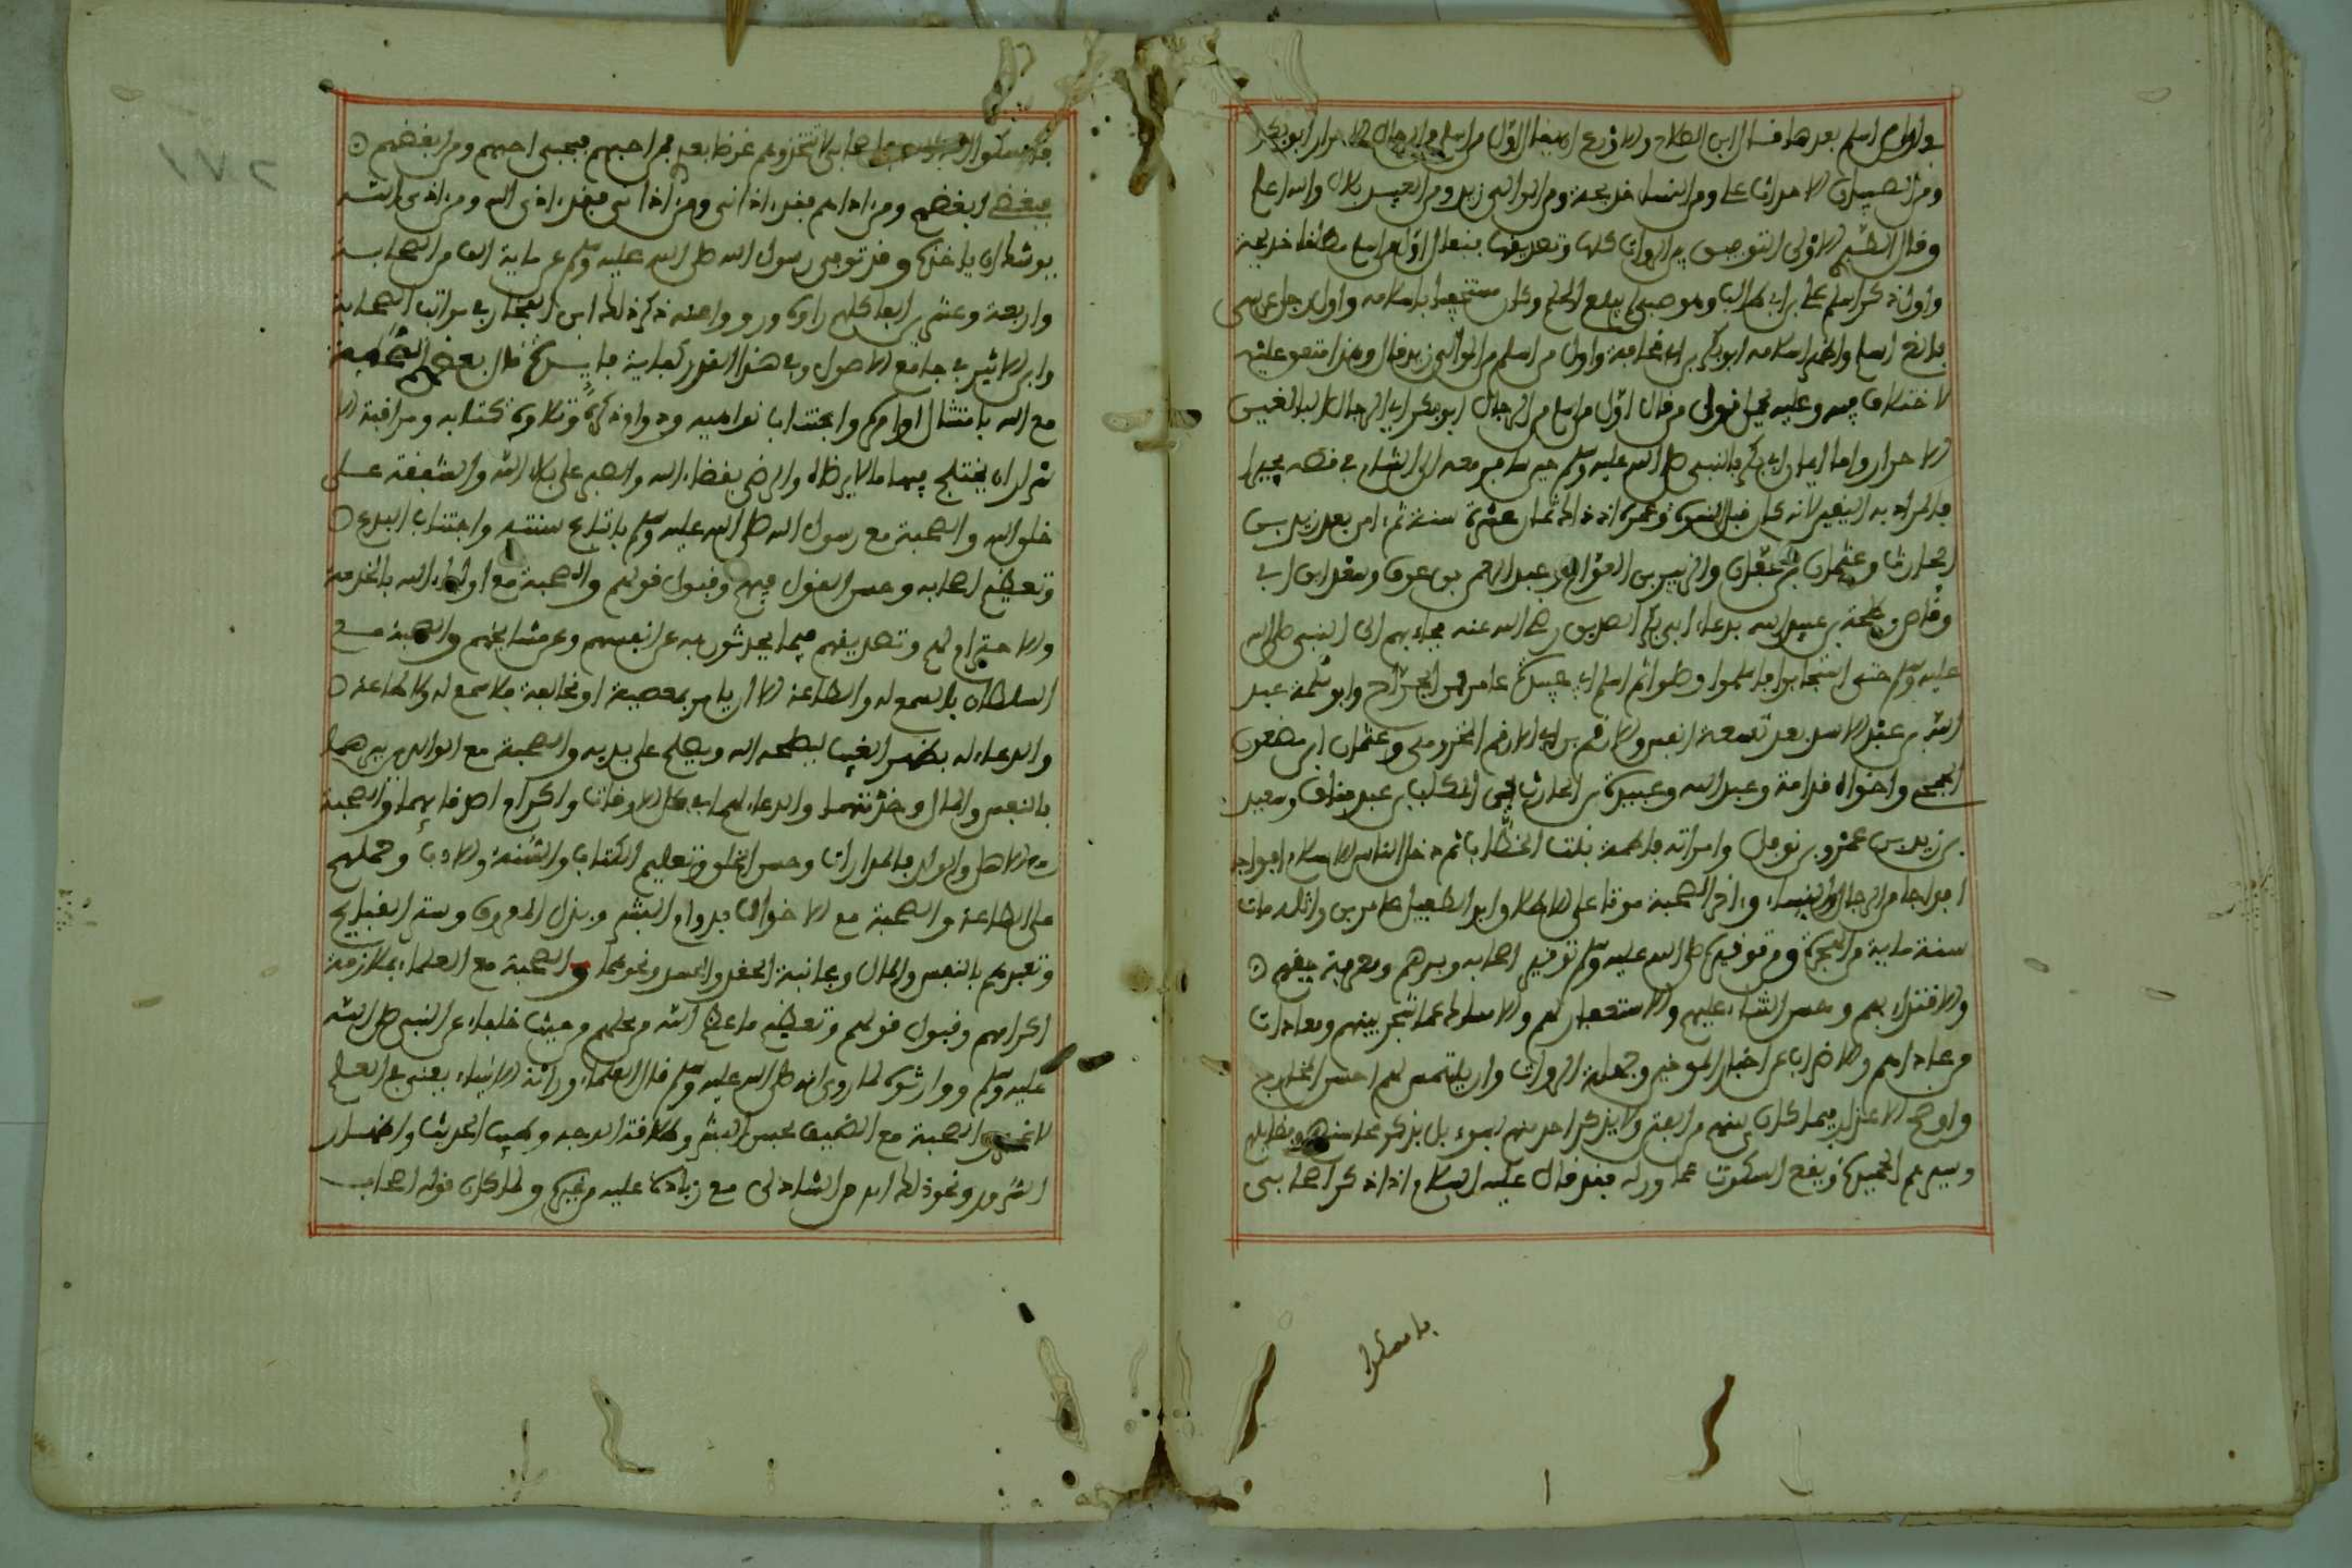 واول من اسلم بعدها فقال ابن الصلاح والاورع ان يقال اول من اسلم من الرجال الاحرار ابو بكر
ومن الصبيان الاحداث علي ومن النساء خديجة ومن الموالي زيد ومن العبيد بلال والله اعلم
وقال الاولى التوفيق بين الروايات كلها وتصديقها فيقال اول من اسلم مطلقا خديجة
واول ذكر اسلم علي بن ابي طالب وهو صبي لم يبلغ الحلم وكان مستخفيا باسلامه واول رجل عربي
بالغ اسلم واظهر اسلامه ابو بكر بن ابي قحافة واول من اسلم من الموالي زيد قال وهذا متفق عليه
لا اختلاف فيه وعليه يحمل قول من قال اول من اسلم من الرجال ابو بكر اي الرجال البالغين
الاحرار واما ايمان ابي بكر بالنبي صلى الله عليه وسلم حين سافر معه الى الشام في قصة بحيرا
فالمراد به اليقين لانه كان قبل النبوة وعمره اذ ذاك ثمان عشرة سنة ثم امن بعد زيد بن
الحارث وعثمان بن عفان والزبير بن العوام وعبد الرحمن بن عوف وسعد ابن ابي
وقاص وطلحة بن عبيد الله بدعاء ابي بكر الصديق رضي الله عنه فجاء بهم الى النبي صلى الله
عليه وسلم حتى استجابوا فاسلموا وصلوا ثم اسلم ابو عبيدة عامر بن الجراح وابو سلمة عبد
الله بن عبد الاسد بعد تسعة انفس والارقم بن ابي الارقم المخزومي وعثمان ابن مضعون
الجمحي واخواه قدامة وعبد الله وعبيدة بن الحارث بن المطلب بن عبد مناف وسعيد
بن زيد بن عمرو بن نوفل وامراته فاطمة بنت الخطاب ثم دخل الناس الاسلام افواجا
افواجا من الرجال والنساء واخر الصحبة موتا على الاطلاق ابو الطفيل عامر بن واثلة مات
سنة ماية من الهجرة ومن توقيره صلى الله عليه وسلم توقير اصحابه وبرهم ومعرفة حقهم
والاقتداء بهم وحسن الثناء عليهم والاستغفار لهم والامساك عما شجر بينهم ومعادات
من عاداهم والاضراب عن اخبار المورخين وجهلة الرواة وان يلتمس لهم احسن المخارج
واوضح الاعذار فيما كان بينهم من الفتن ولا يذكر احد منهم بسوء بل يذكر محاسنهم وفضايلهم
وسيرهم الحميدة ويقع السكوت عما وراء فقد قال عليه السلام اذا ذكر اصحابي
فامسكوا
٢٧١
فامسكوا اصحابي لا تتخذوهم غرضا بعدي فمن احبهم فبحبي احبهم ومن ابغضهم
فببغضي ابغضهم ومن اذاهم فقد اذاني ومن اذاني فقد اذى الله ومن اذى الله
يوشك ان ياخذه وقد توفي رسول الله صلى الله عليه وسلم عن ماية الف من الصحابة
واربعة وعشرين الفا كلهم راوه ورووا عنه ذكر ذلك ابن الفخار في مراتب الصحابة
وابن الاثير في جامع الاصول وفي هذا القدر كفاية قال بعضهم الصحبة
مع الله بامتثال اوامره واجتناب نواهيه ودوام ذكره وتلاوة كتابه ومراقبة
سر ان يختلج فيها ما لا يرضاه والرضى بقضاء الله والصبر على بلاء الله والشفقة على
خلق الله والصحبة مع رسول الله صلى الله عليه وسلم باتباع سنته واجتناب البدع
وتعظيم اصحابه وحسن القول فيهم وقبول قولهم والصحبة مع اولياء الله بالخدمة
والاحترام لهم وتصديقهم فيما يحدثون به عن انفسهم وعن مشايخهم والصحبة مع
السلطان بالسمع له والطاعة الا ان يامر بمعصية او مخالفة فلا سمع له ولا طاعة
والدعاء له بظهر الغيب ليصلحه الله ويصلح على يديه والصحبة مع الوالدين ببرهما
بالنفس والمال وخدمتهما والدعاء لهما في كل الاوقات واكرام اصدقائهما والصحبة
مع الاهل والولد بالمدارات وحسن الخلق وتعليم الكتاب والسنة والادب وحملهم
على الطاعة والصحبة مع الاخوان بدوام البشر وبذل المعروف وستر القبايح
وتفقدهم بالنفس والمال ومجانبة الحقد والحسد ونحوهما والصحبة مع العلماء بملازمة
اكرامهم وقبول قولهم وتعظيم ما عظم الله من محلهم من حيث خلفاء عن النبي صلى الله
عليه وسلم ووارثوه لما روي انه صلى الله عليه وسلم قال العلماء ورثة الانبياء يعني في العلم
لا والصحبة مع الضيف بحسن البشر وطلاقة الوجه وطيب الحديث واظهار
السرور ونحو ذلك الشاذلي مع زيادة عليه من غيره ولما كان قوله اصحاب